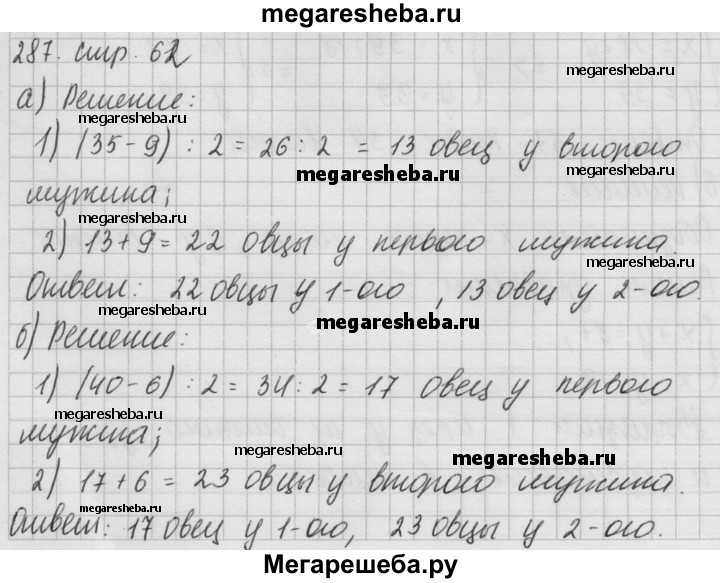 megaresheba.ru
287. стр. 62
megaresheba.ru
а) Решение:
megaresheba.ru
1) (35-9) : 2 = 26 : 2 = 13 овец у второго
megaresheba.ru
мужина;
megaresheba.ru
2) 13+9 = 22 овцы у первого мужина.
megaresheba.ru
Ответ: 22 овцы у 1-ого, 13 овец у 2-ого.
megaresheba.ru
megaresheba.ru
б) Решение:
1) (40-6) : 2 = 34 : 2 = 17 овец у первого
megaresheba.ru
мужина;
megaresheba.ru
megaresheba.ru
2) 17+6 = 23 овцы у второго мужина.
megaresheba.ru
Ответ: 17 овец у 1-ого, 23 овцы у 2-ого.
Мегарешеба.ру